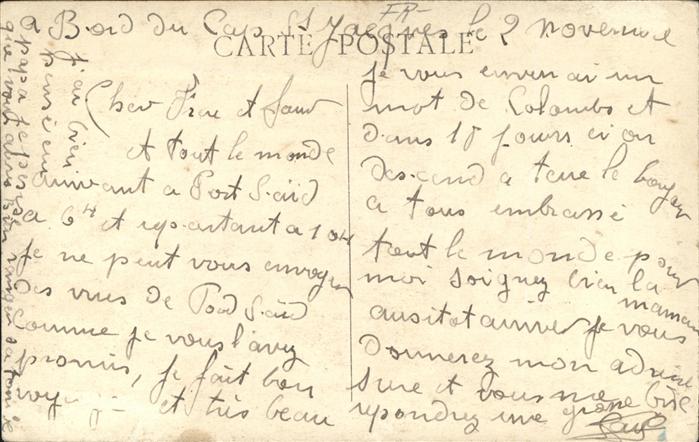 FR-
CARTE POSTALE
a Bord du Cap St Jacques le 2 novembre
Cher Frere et Sœur
et tout le monde
arrivant a Port Saïd
a 6H et repartant a 10H
je ne peut vous envoyer
des vues de Pord Saïd
comme je vous l'avez
promis, je fait bon
voyage et très beau
je vous enverrai un
mot de Colombo et
dans 18 jours si on
descend a terre le
a tous embrassé
tout le monde pour
moi soignez bien la
maman
ausitot arriver je vous
Donnerez mon adresse
sure et vous me
repondrez une grosse bise
Paul
j'ai bien
pensé en
papa je pense
que vous